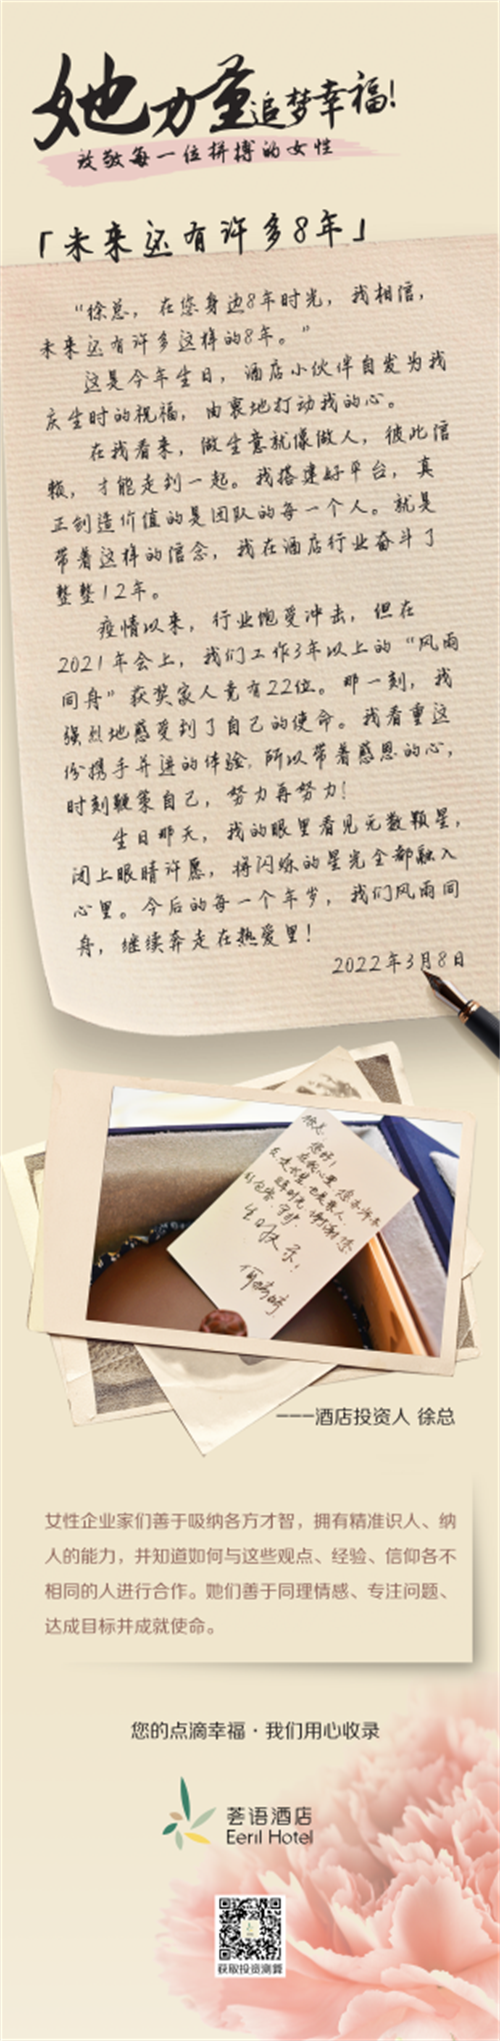 她力量追梦幸福!
致敬每一位拼搏的女性
「未来还有许多8年」
“徐总，在您身边8年时光，我相信，
未来还有许多这样的8年。”
这是今年生日，酒店小伙伴自发为我
庆生时的祝福，由衷地打动我的心。
在我看来，做生意就像做人，彼此信
赖，才能走到一起。我搭建好平台，真
正创造价值的是团队的每一个人。就是
带着这样的信念，我在酒店行业奋斗了
整整12年。
疫情以来，行业饱受冲击，但在
2021年会上，我们工作3年以上的“风雨
同舟”获奖家人竟有22位。那一刻，我
强烈地感受到了自己的使命。我看重这
份携手并进的体验，所以带着感恩的心，
时刻鞭策自己，努力再努力!
生日那天，我的眼里看见无数颗星，
闭上眼睛许愿，将闪烁的星光全都融入
心里。今后的每一个年岁，我们风雨同
舟，继续奔走在热爱里!
2022年3月8日
徐总，
您好!
生日快乐!
---酒店投资人 徐总
女性企业家们善于吸纳各方才智，拥有精准识人、纳
人的能力，并知道如何与这些观点、经验、信仰各不
相同的人进行合作。她们善于同理情感、专注问题、
达成目标并成就使命。
您的点滴幸福·我们用心收录
荟语酒店
Eeril Hotel
获取投资测算